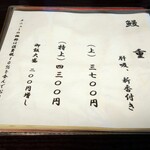 鰻重
肝吸、新香付き
（上）三七〇〇円
（特上）四三〇〇円
御飯大盛 二〇〇円増し